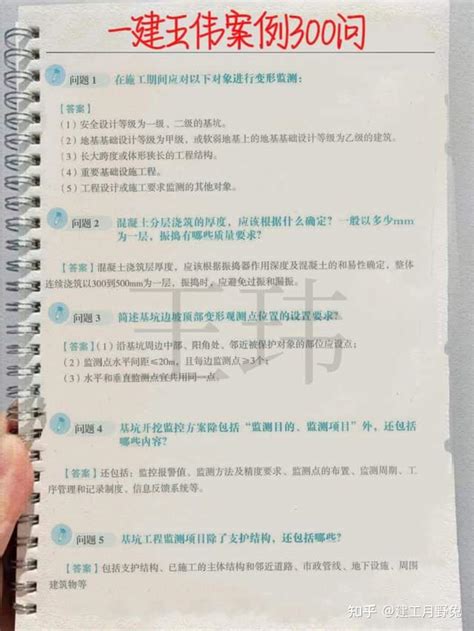 一建王伟案例300问
问题 1 在施工期间应对以下对象进行变形监测：
【答案】
（1）安全设计等级为一级、二级的基坑。
（2）地基基础设计等级为甲级，或软弱地基上的地基基础设计等级为乙级的建筑。
（3）长大跨度或体形狭长的工程结构。
（4）重要基础设施工程。
（5）工程设计或施工要求监测的其他对象。
问题 2 混凝土分层浇筑的厚度，应该根据什么确定？一般以多少mm
为一层，振捣有哪些质量要求？
【答案】混凝土浇筑层厚度，应该根据振捣器作用深度及混凝土的和易性确定，整体
连续浇筑以300到500mm为一层，振捣时，应避免过振和漏振。
问题 3 简述基坑边坡顶部变形观测点位置的设置要求？
【答案】（1）沿基坑周边中部、阳角处、邻近被保护对象的部位应设点；
（2）监测点水平间距≤20m，且每边监测点≥3个；
（3）水平和垂直监测点宜共用同一点
王玮
问题 4 基坑开挖监控方案除包括“监测目的、监测项目”外，还包括
哪些内容？
【答案】还包括：监控报警值、监测方法及精度要求、监测点的布置、监测周期、工
序管理和记录制度、信息反馈系统等。
问题 5 基坑工程监测项目除了支护结构，还包括哪些？
【答案】包括支护结构、已施工的主体结构和邻近道路、市政管线、地下设施、周围
建筑物等
知乎 @建工月野兔